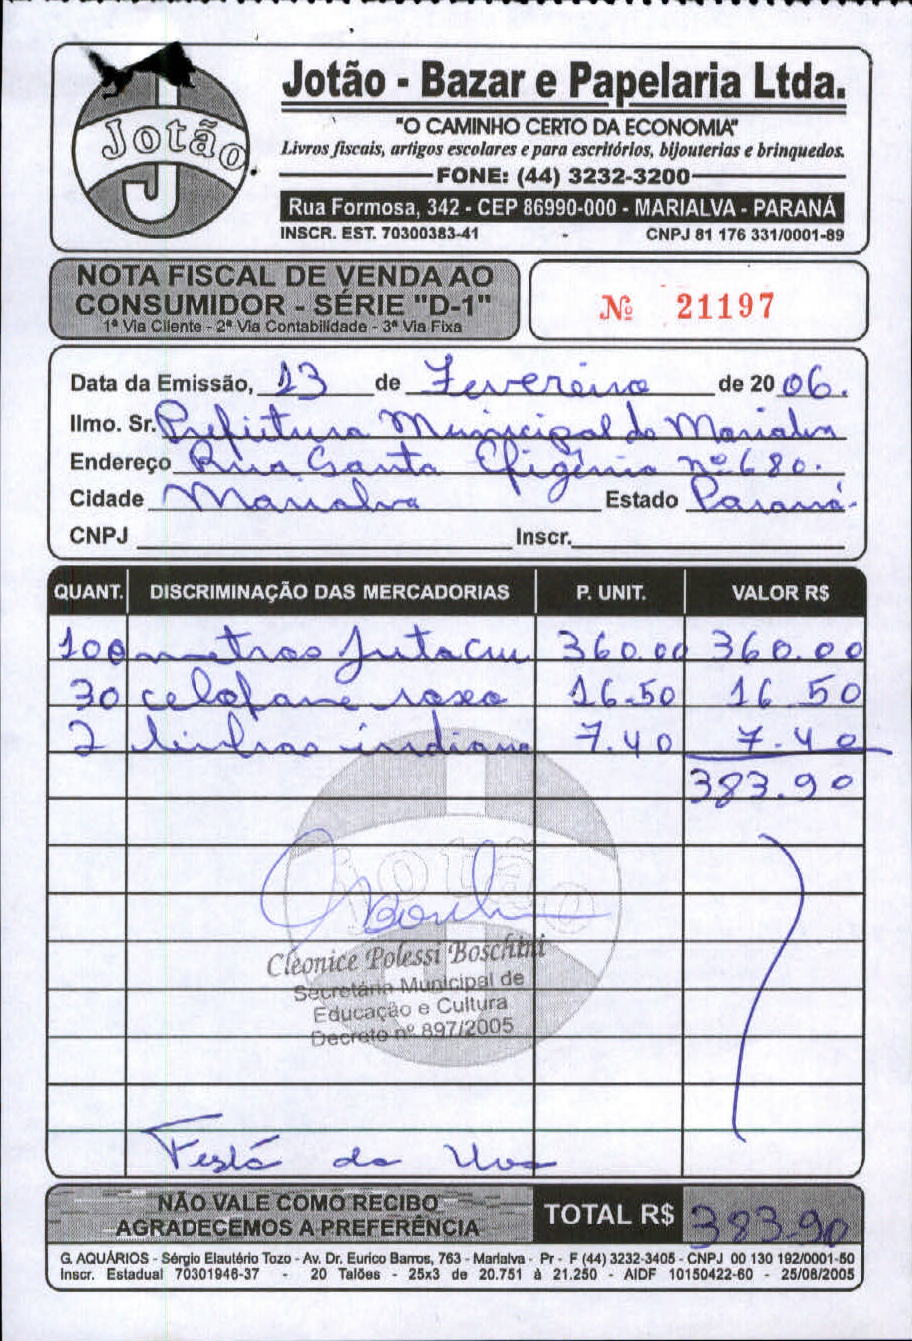 Jotão
Jotão - Bazar e Papelaria Ltda.
"O CAMINHO CERTO DA ECONOMIA"
Livros fiscais, artigos escolares e para escritórios, bijouterias e brinquedos.
FONE: (44) 3232-3200
Rua Formosa, 342 - CEP 86990-000 - MARIALVA - PARANÁ
INSCR. EST. 70300383-41 - CNPJ 81 176 331/0001-89
NOTA FISCAL DE VENDA AO
CONSUMIDOR - SÉRIE "D-1"
1ª Via Cliente - 2ª Via Contabilidade - 3ª Via Fixa
Nº 21197
Data da Emissão, 13 de Fevereiro de 2006.
Ilmo. Sr. Prefeitura Municipal de Marialva
Endereço Rua Santa Efigênia nº 680.
Cidade Marialva Estado Paraná.
CNPJ Inscr.
QUANT. DISCRIMINAÇÃO DAS MERCADORIAS P. UNIT. VALOR R$
100 metros 360.00 360.00
30 celofane roxo 16.50 16.50
2 linhas indiana 7.40 7.40
383.90
Jotão
Cleonice Polessi Boschini
Secretária Municipal de
Educação e Cultura
Decreto nº 897/2005
Festa da Uva
NÃO VALE COMO RECIBO
AGRADECEMOS A PREFERÊNCIA
TOTAL R$ 383.90
G. AQUÁRIOS - Sérgio Elautério Tozo - Av. Dr. Eurico Barros, 763 - Marialva - Pr - F (44) 3232-3405 - CNPJ 00 130 192/0001-50
Inscr. Estadual 70301946-37 - 20 Talões - 25x3 de 20.751 à 21.250 - AIDF 10150422-60 - 25/08/2005